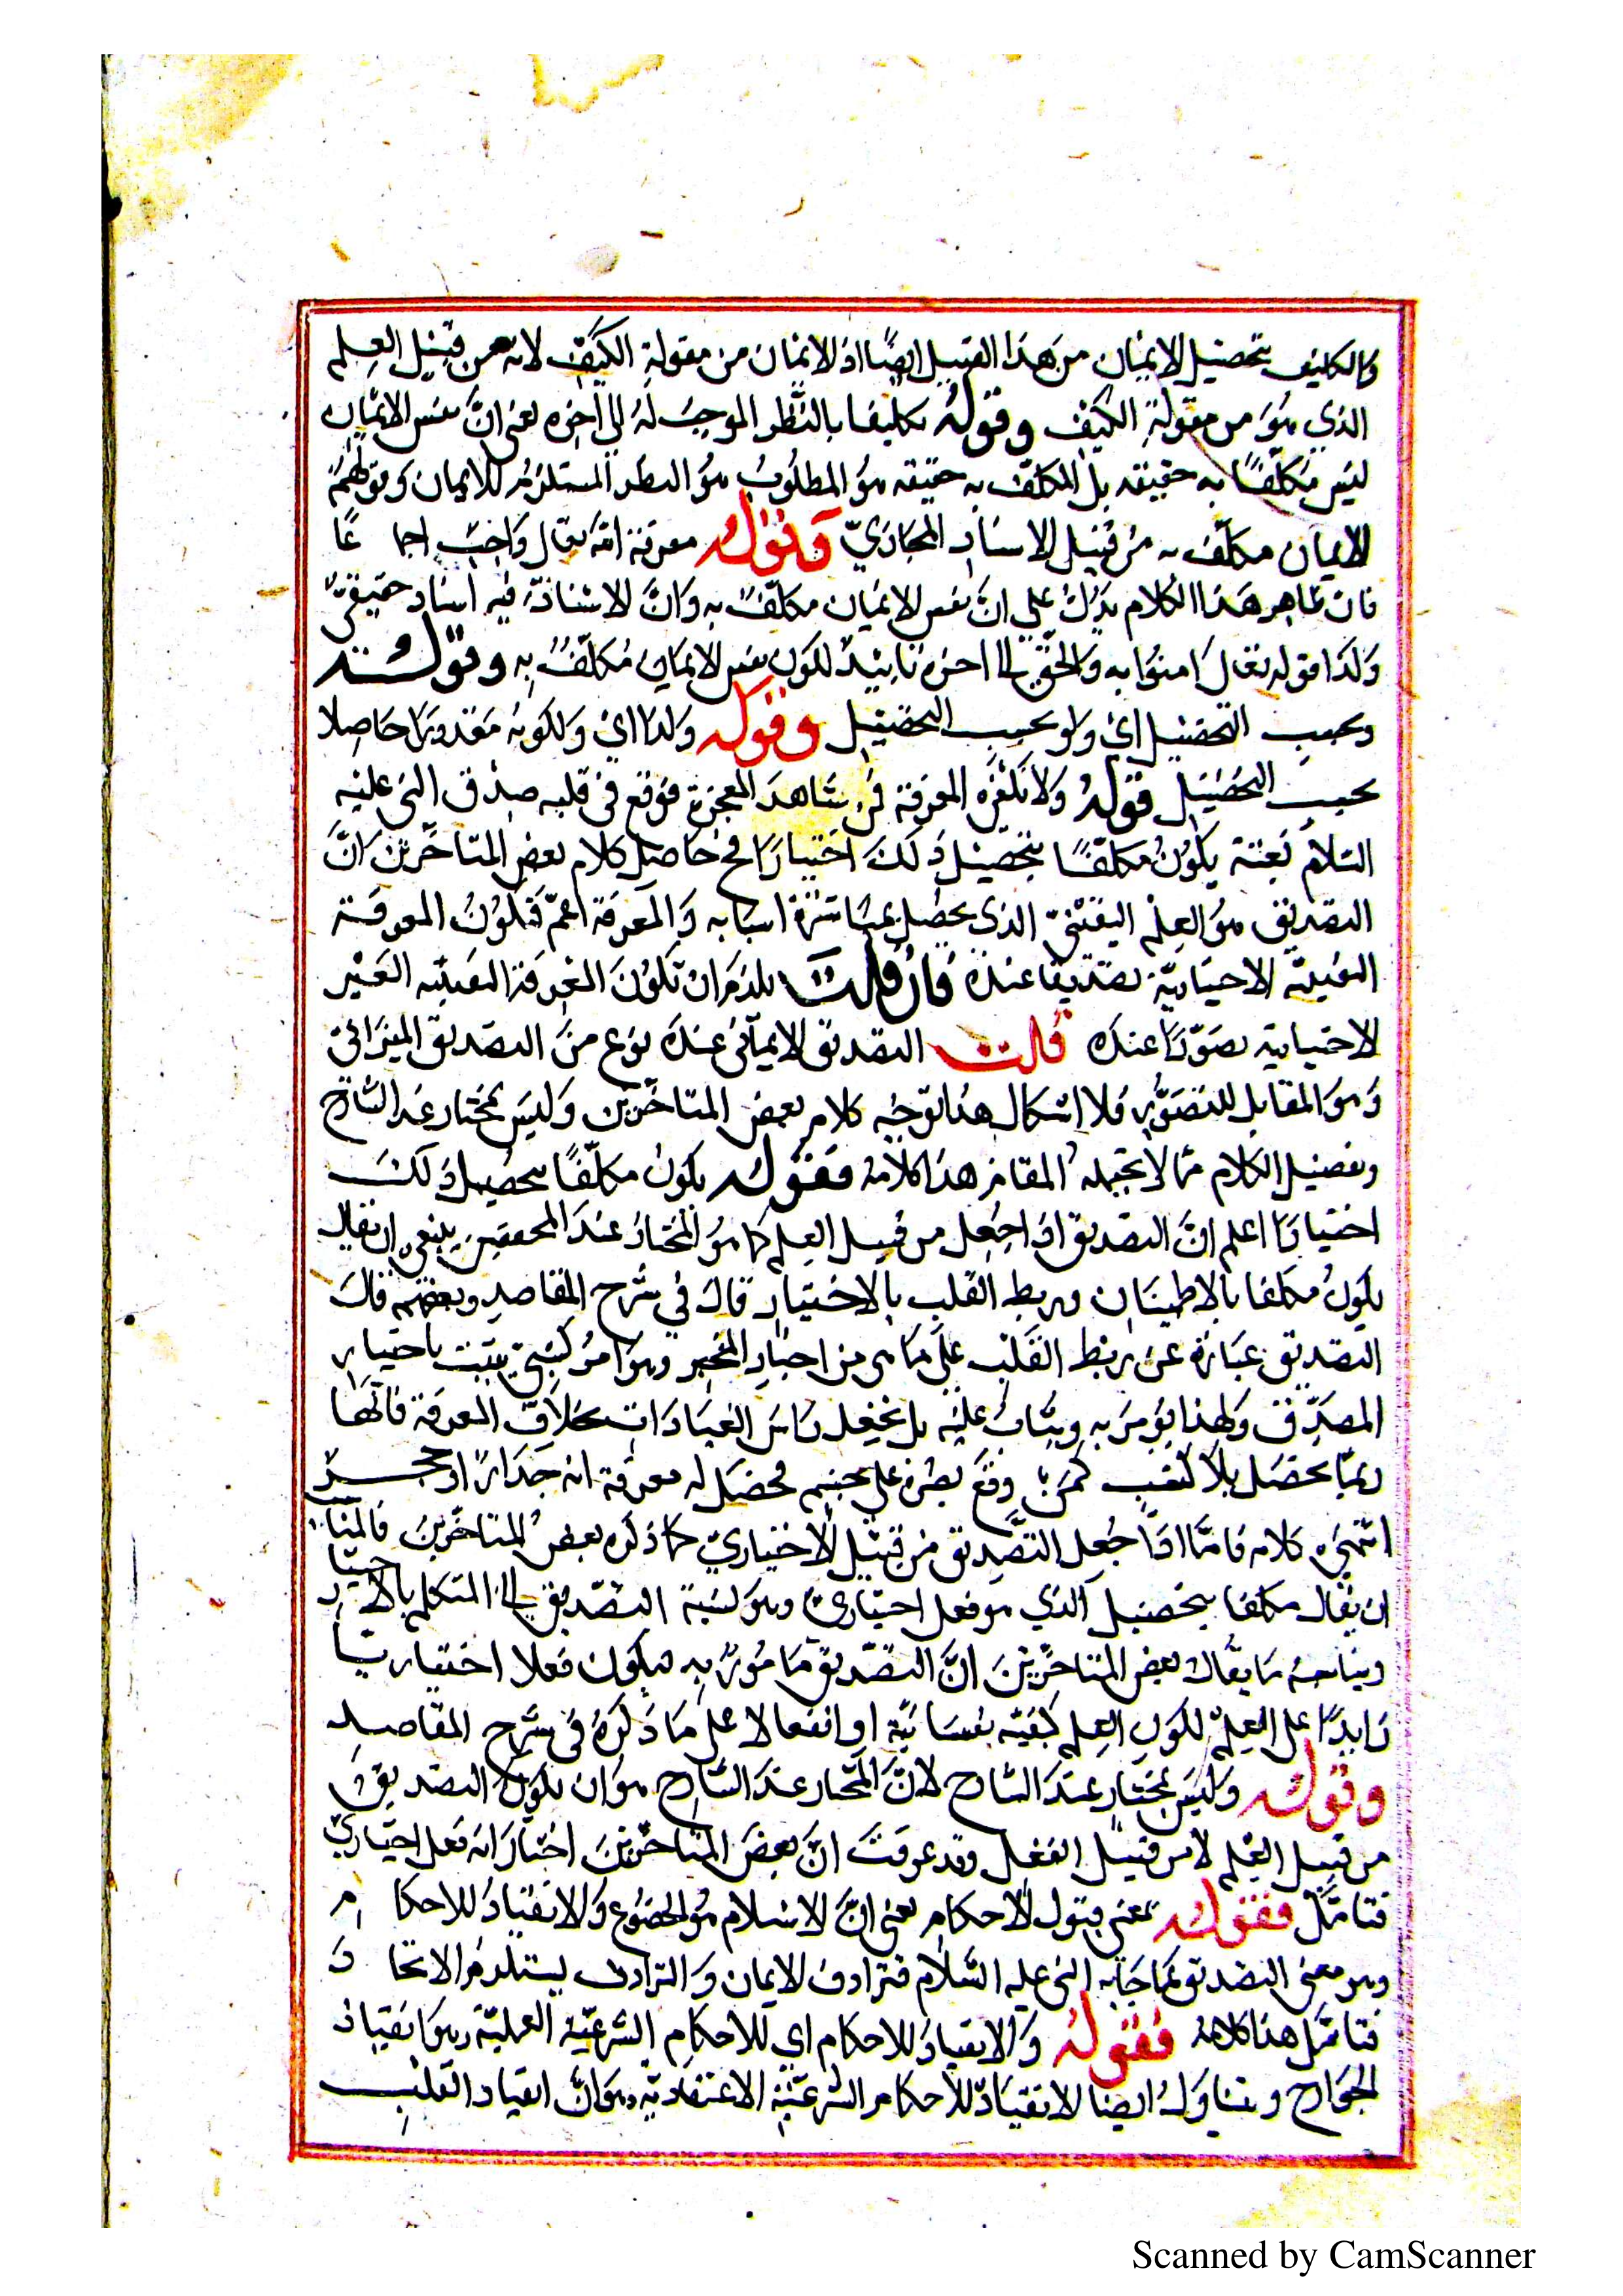 والتكليف بتحصيل الايمان من هذا القبيل ايضا اذ الايمان من مقولة الكيف لانه من قبيل العلم
الذي هو من مقولة الكيف وقوله تكليفا بالنظر الموجب له الى اخره يعني ان نفس الايمان
ليس مكلفا به حقيقة بل المكلف به حقيقة هو المطلوب هو النظر المستلزم للايمان وقولهم
الايمان مكلف به من قبيل الاسناد المجازي فقوله معرفة الله تعالى واجب اجماعا
فان ظاهر هذا الكلام يدل على ان نفس الايمان مكلف به وان الاسناد فيه اسناد حقيقي
وكذا قوله تعالى امنوا به والحق الى اخره تاييد لكون نفس الايمان مكلف به وقوله
وبحسب التحصيل اي ولو بحسب التحصيل وقوله ولذا اي ولكونه مقدورا حاصلا
بحسب التحصيل قوله ولا تكفي المعرفة فمن شاهد المعجزة فوقع في قلبه صدق النبي عليه
السلام بغتة يكون مكلفا بتحصيل ذلك اختيارا فح حاصل كلام بعض المتاخرين ان
التصديق هو العلم اليقيني الذي يحصل بمباشرة اسبابه والمعرفة اعم فتكون المعرفة
اليقينية الاختيارية تصديقا عنده فان قلت يلزم ان تكون المعرفة اليقينية الغير
الاختيارية تصورا عنده قلت التصديق الايماني عنده نوع من التصديق الميزاني
وهو المقابل للتصور فلا اشكال هذا توجيه كلام بعض المتاخرين وليس بمختار عند الشارح
وتفصيل الكلام مما لا يحتمله المقام هذا كلامه فقوله يكون مكلفا بتحصيل ذلك
اختيارا اعلم ان التصديق اذا جعل من قبيل العلم كما هو المختار عند المحققين ينبغي ان يقال
يكون مكلفا بالاطمينان وربط القلب بالاختيار قال في شرح المقاصد وبعضهم قال
التصديق عبارة عن ربط القلب على ما من اخبار المخبر وهو امر كسبي يثبت باختيار
المصدق ولهذا يؤمر به ويثاب عليه بل يجعل راس العبادات بخلاف المعرفة فانها
ربما يحصل بلا كسب كمن وقع بصره على جسم فحصل له معرفة انه جدار او حجر
انتهى كلامه فاما اذا جعل التصديق من قبيل الاختياري كما ذكره بعض المتاخرين فالمناسب
ان يقال مكلفا بتحصيل الذي هو فعل اختياري وهو نسبة التصديق الى المتكلم بالاختيار
ما يقال بعض المتاخرين ان التصديق مامور به فيكون فعلا اختياريا
زايدا على العلم لكون العلم كيفية نفسانية او انفعالا على ما ذكره في شرح المقاصد
وقوله وليس بمختار عند الشارح لان المختار عند الشارح هو ان يكون التصديق
من قبيل العلم لا من قبيل الفعل وقد عرفت ان بعض المتاخرين اختار انه فعل اختياري
فتامل فقوله بمعنى قبول الاحكام يعني ان الاسلام هو الخضوع والانقياد للاحكام
وهو معنى التصديق بما جاء به النبي عليه السلام فترادف الايمان والترادف يستلزم الاتحاد
فتامل هذا كلامه فقوله والانقياد للاحكام اي للاحكام الشرعية العملية وهو انقياد
الجوارح ويتناول ايضا الانقياد للاحكام الشرعية الاعتقادية وهو ان انقياد القلب
Scanned by CamScanner